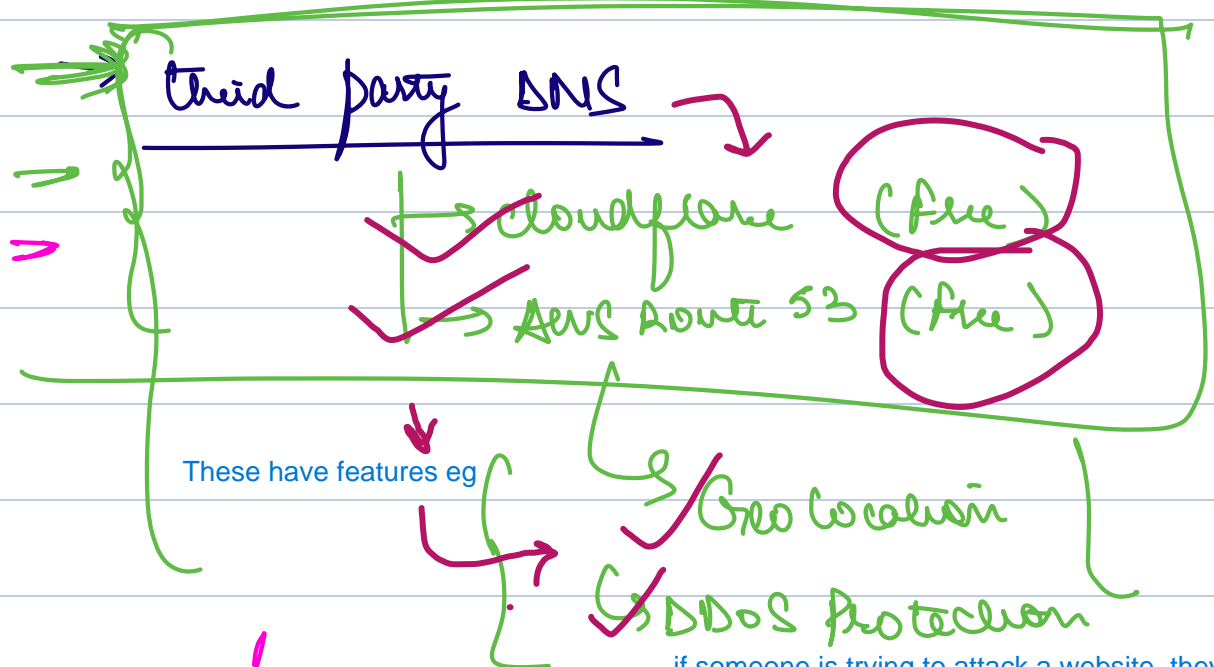 third party DNS
→ Cloudflare (Free)
→ AWS Route 53 (Free)
These have features eg
Geo Location
DDoS Protection
if someone is trying to attack a website, they